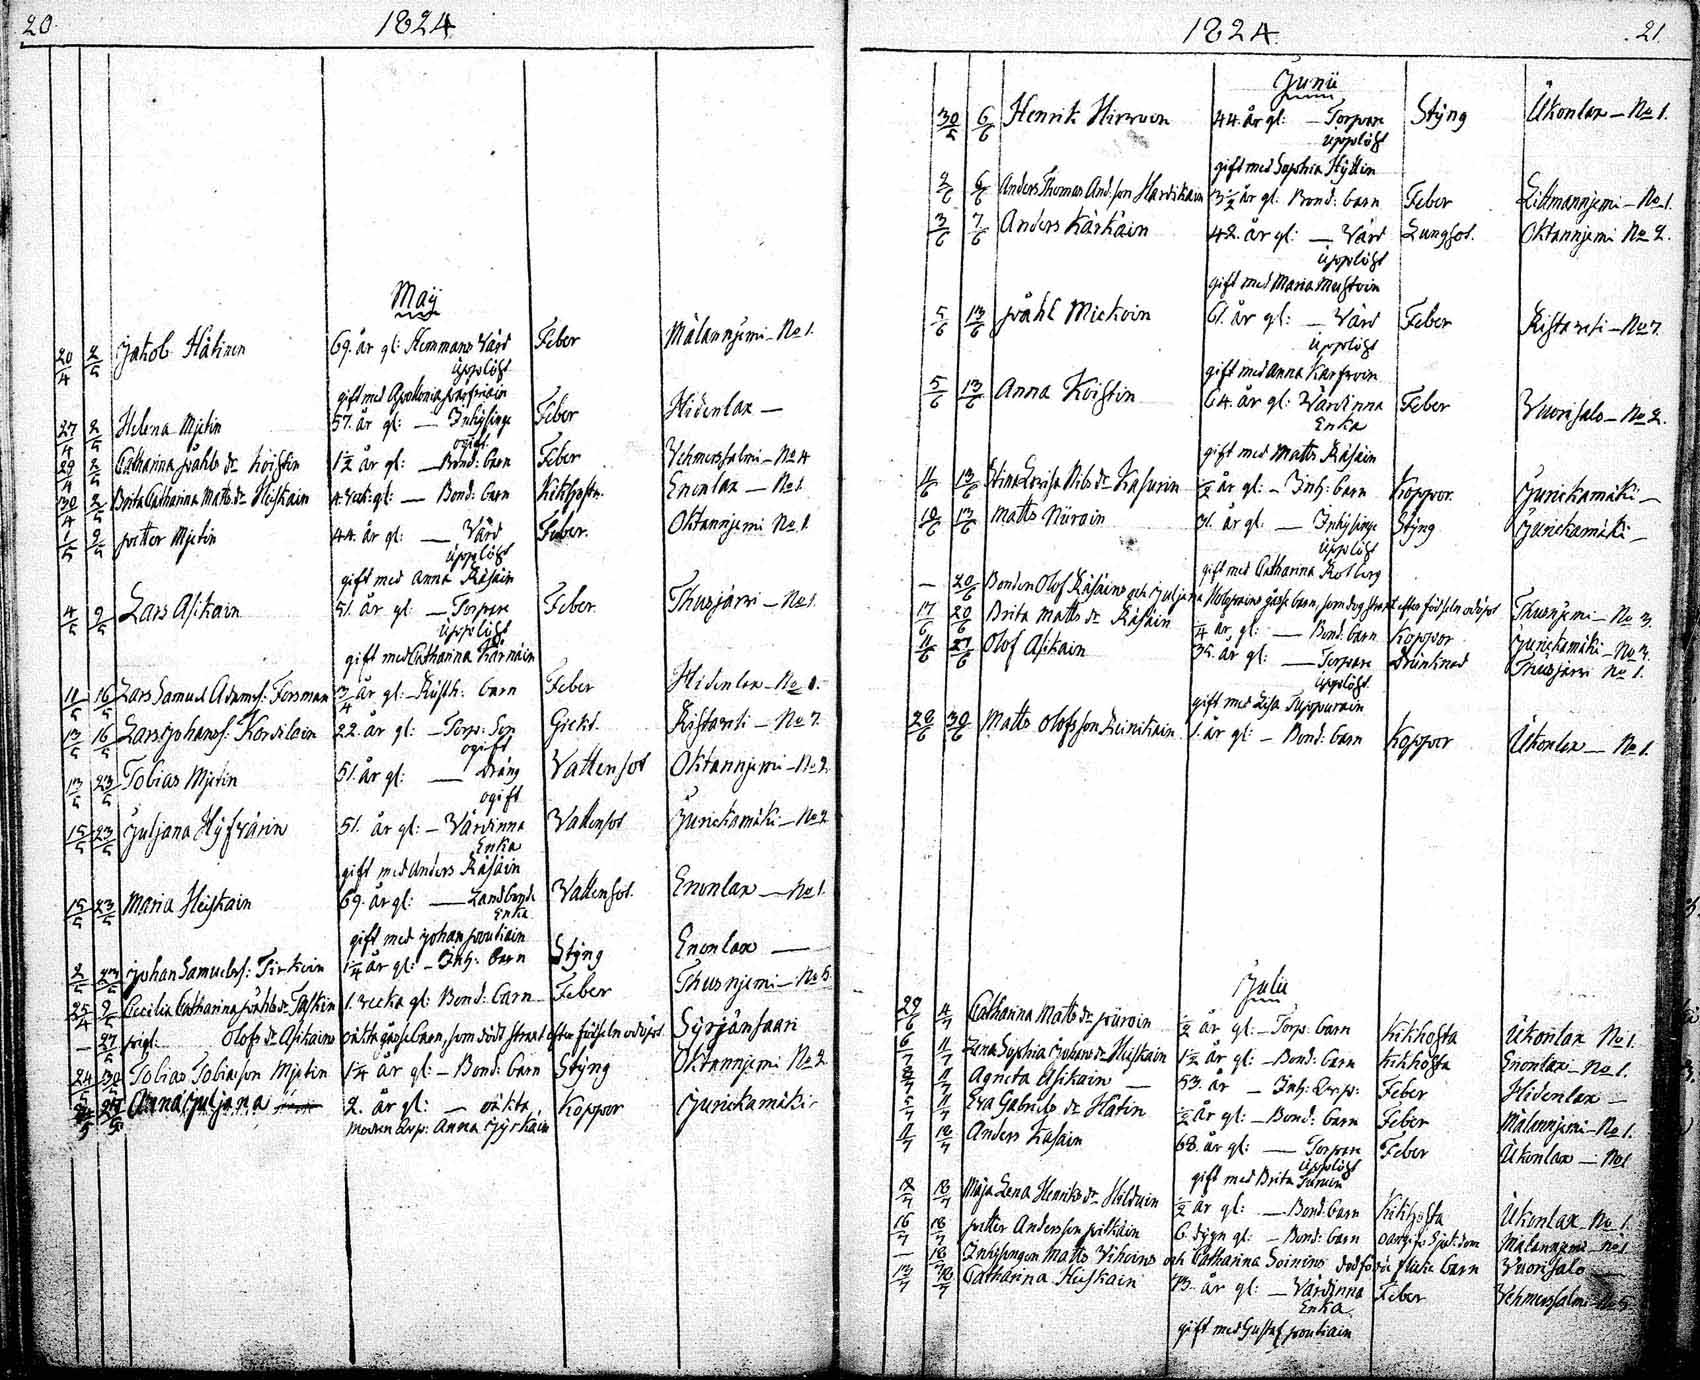 20 1824
May
20/4 2/5 Jakob Håkinen 69. år gl: Hemmans Värd Feber Mälannjemi - No 1.
üpplöst
gift med Apollonia
27/4 2/5 Helena Mjetin 57. år gl: — Inhysinge Feber Hidenlax —
ogift
29/4 2/5 Catharina Påhls dr Koistin 1 1/2 år gl: — Bond: barn Feber Vehmersalmi - No 4
30/4 2/5 Brita Catharina Matts dr Heiskain 4. gl: — Bond: barn Enonlax — No 1
1/5 9/5 Petter Mjetin 44. år gl: — Värd Feber. Oktannjemi No 1.
üpplöst
gift med Anna Räsäin
4/5 9/5 Lars Asikain 51. år gl: — Torpare Feber. Thusjärvi - No 1.
üpplöst
gift med Catharina Kärnäin
11/5 16/5 Lars Samuel Adamsf: Forsman 3/4 år gl: - barn Feber Hidenlax - No 1.
13/5 16/5 Lars Johansf: Kordilain 22. år gl: — Torp: Son Gickt. Ristaveti - No 7.
ogift
13/5 23/5 Tobias Mjetin 51. år gl: — Dräng Vattensot Oktannjemi - No 2.
ogift
15/5 23/5 Juljana Hyfvärin 51. år gl: — Värdinna Vattensot Jurickamäki - No 2
Enka
gift med Anders Räsäin
15/5 23/5 Maria Heiskain 69. år gl: — Landbonde Vattensot. Enonlax — No 1.
Enka
gift med Johan Poutiain
2/5 23/5 Johan Samuelsf: Tirkoin 1 1/4 år gl: - Inh: barn Styng Enonlax —
25/4 9/5 Cecilia Catharina Påhls dr Taskin 1. vecka gl: Bond: barn Feber Thusnjemi - No 5.
— 27/5 pigl. Olofs dr Asikains oäkta gåsse barn, som dödt strart efter födseln odöpt. Syrjänsaari
24/5 30/5 Tobias Tobiasson Mjetin 1 1/4 år gl: - Bond: barn Styng Oktannjemi No 2.
Anna Juljana 2. år gl: — oäkta Koppor Jurickamäki -
modren Anna Jyrkäin
1824. 21.
Junii
30/5 6/6 Henrik Hirvoin 44. år gl: — Torpare Styng Ükonlax — No 1.
üpplöst
gift med Sophia Hyttin
2/6 6/6 Anders Thomas And: son Hardikain 3 1/2 år gl: Bond: barn Feber Littmannjemi - No 1.
3/6 7/6 Anders Kärkäin 42. år gl: — Värd Lungsot. Oktannjemi No 2.
üpplöst
gift med Maria Mustoin
5/6 13/6 Påhl Mickoin 61. år gl: — Värd Feber Ristaveti - No 7.
üpplöst
gift med Anna Karfvoin
5/6 13/6 Anna Koistin 64. år gl: Värdinna Feber Vuorisalo - No 2.
Enka
gift med Matts Räsäin
11/6 13/6 Stina Lovisa Nils dr Kasurin 1/2 år gl: - Inh: barn Koppor. Jurickamäki —
10/6 13/6 Matts Nüroin 31. år gl: — Inhysinge Styng Jurickamäki —
üpplöst
gift med Catharina Rotberg
— 20/6 Bonden Olof Räsäins och Juljana gåsse barn, som dog strart efter födseln odöpt Thusnjemi - No 3.
17/6 20/6 Brita Matts dr Räsäin 1/4 år gl: — Bond: barn Koppor Jurickamäki - No 7.
11/6 27/6 Olof Asikain 35. år gl: — Torpare Drunknad Thusjärvi No 1.
üpplöst
gift med Lisa Tuppurain
28/6 30/6 Matts Olofsson Reinikain 1. år gl: - Bond: barn Koppor Ükonlax — No 1.
Julii
29/6 4/7 Catharina Matts dr Püroin 1/2 år gl: - Torp: barn Kikhosta Ükonlax No 1.
6/7 11/7 Lena Sophia Johans dr Heiskain 1 1/2 år gl: - Bond: barn Kikhosta Enonlax - No 1.
8/7 11/7 Agneta Asikain — 53. år — Inh: Feber Hidenlax —
5/7 11/7 Eva Gabriels dr Hätin 1/2 år gl: - Bond: barn Feber Mälannjemi - No 1.
11/7 18/7 Anders Kasäin 68. år gl: — Torpare Feber Ükonlax — No 1
üpplöst
gift med Brita
12/7 18/7 Maja Lena Henriks dr Hilduin 1/2 år gl: — Bond: barn Kikhosta Ükonlax - No 1.
16/7 18/7 Petter Andersson Pitkäin 6. dygn gl: — Bond: barn oangifv: Sjukdom Mälannjemi - No 1
— 18/7 Inhysingen Matts Vihoins och Catharina Soinins dödfödda flicke barn Vuorisalo —
13/7 18/7 Catharina Heiskain 73. år gl: — Värdinna Feber Vehmersalmi - No 5.
Enka
gift med Gustaf Poutiain